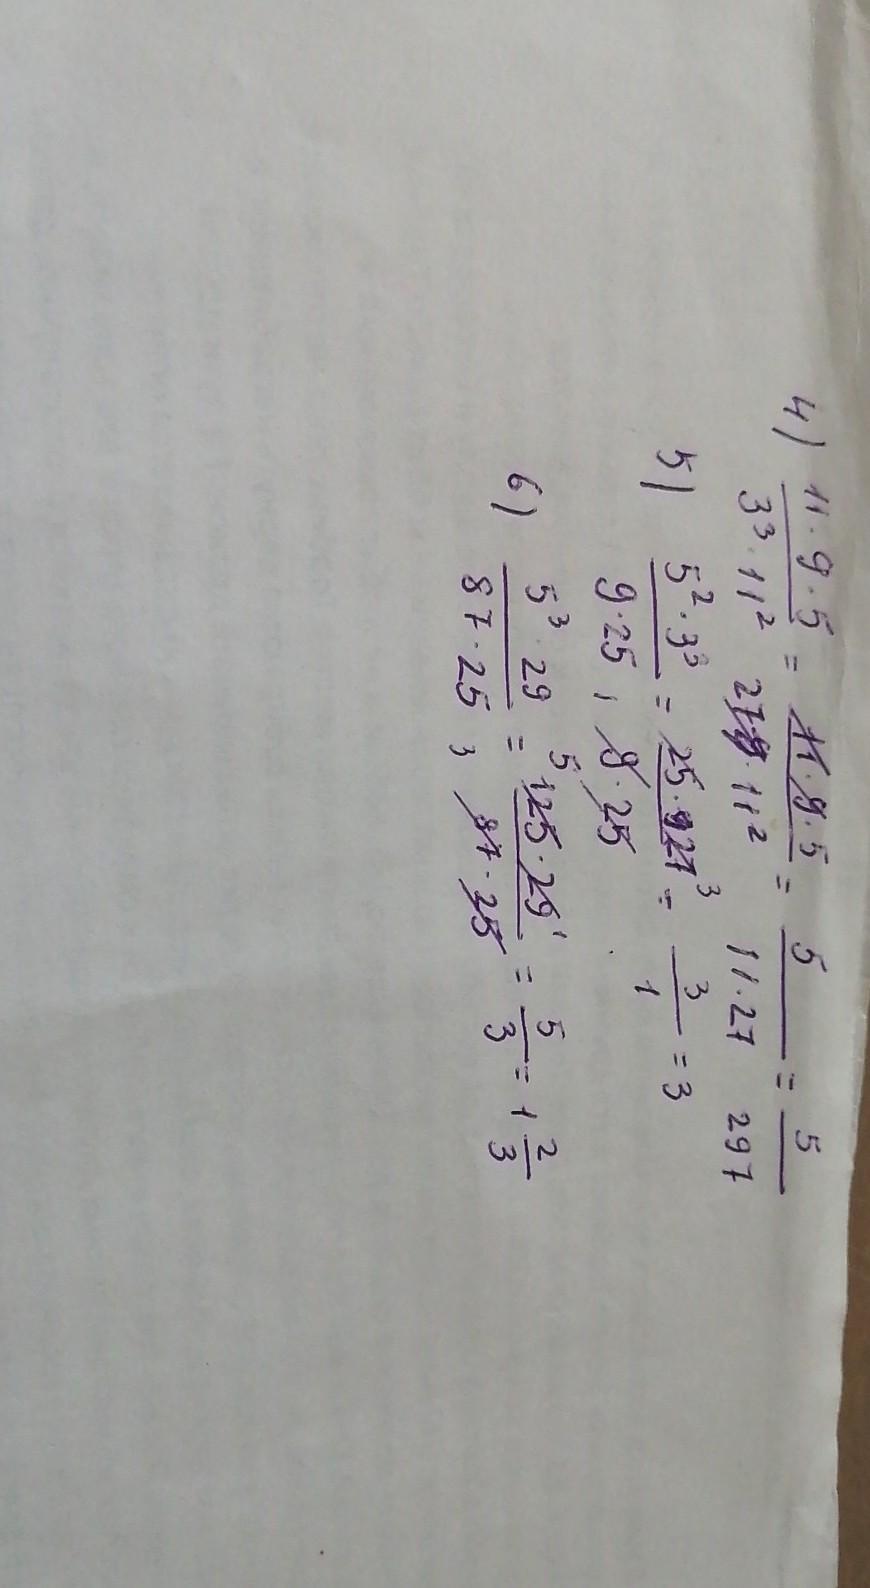 4) 11·9·5 / 3³·11² = 11·9·5 / 27·11² = 5 / 11·27 = 5 / 297
5) 5²·3³ / 9·25 = 25·27 ³ / 9·25 = 3 / 1 = 3
6) 5³·29 / 87·25 = 5 125·29 ¹ / 3 87·25 = 5 / 3 = 1 2/3